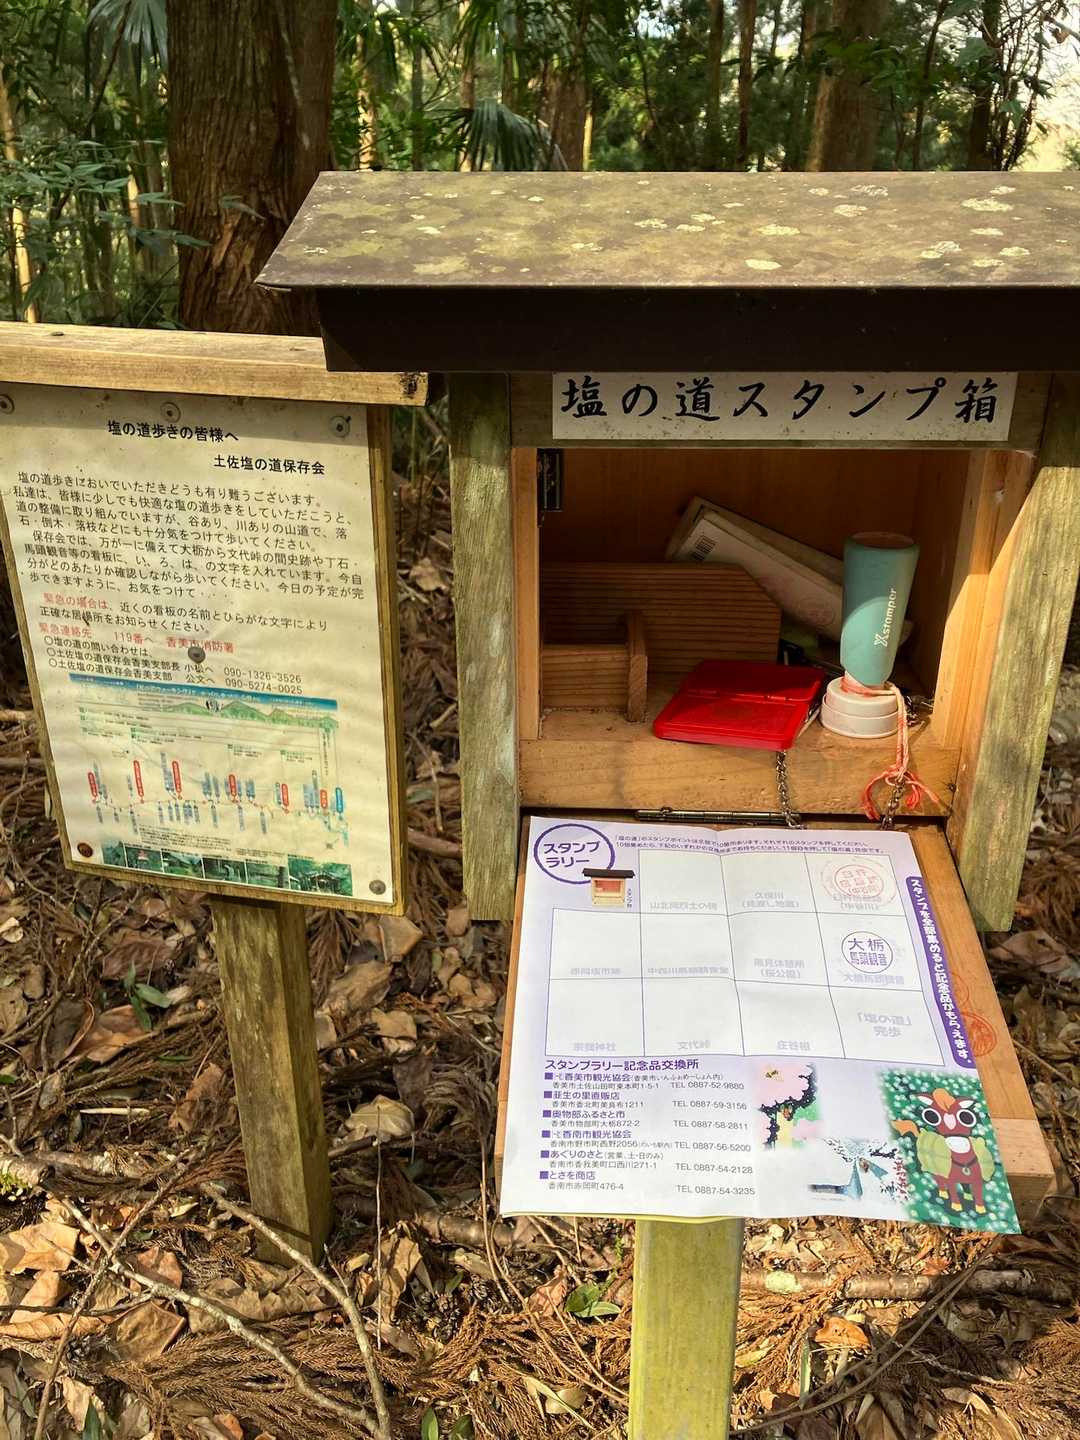 塩の道スタンプ箱
塩の道歩きの皆様へ
土佐塩の道保存会
塩の道歩きにおいでいただきどうも有り難うございます。
私達は、皆様に少しでも快適な塩の道歩きをしていただこうと、
道の整備に取り組んでいますが、谷あり、川ありの山道で、落
石・倒木・落枝などにも十分気をつけて歩いてください。
保存会では、万が一に備えて大栃から文代峠の間史跡や丁石・
馬頭観音等の看板に、い、ろ、は、の文字を入れています。今自
分がどのあたりか確認しながら歩いてください。今日の予定が完
歩できますように、お気をつけて・・・
緊急の場合は、近くの看板の名前とひらがな文字により
正確な居場所をお知らせください。
緊急連絡先 119番へ 香美市消防署
○塩の道の問い合わせは、
○土佐塩の道保存会香美支部長 小松へ 090-1326-3526
○土佐塩の道保存会香美支部 公文へ 090-5274-0025
Xstamper
スタンプ
ラリー
「塩の道」のスタンプポイントは全部で10箇所あります。それぞれのスタンプを押してください。
スタンプ箱
山北岡烈士の碑
久保川
(見渡し地蔵)
(中谷川)
赤岡塩市跡
中西川馬頭観音堂
風見休憩所
(桜公園)
大栃
馬頭観音
大栃馬頭観音
宗我神社
文代峠
庄谷相
「塩の道」
完歩
スタンプを全部集めると記念品がもらえます。
スタンプラリー記念品交換所
■香美市観光協会(香美市いんふぉめーしょん内)
香美市土佐山田町東本町1-5-1 TEL 0887-52-9880
■韮生の里直販店
香美市香北町美良布1211 TEL 0887-59-3156
■奥物部ふるさと市
香美市物部町大栃872-2 TEL 0887-58-2811
■香南市観光協会
香南市野市町西野2056(のいち駅内) TEL 0887-56-5200
■あぐりのさと(営業、土・日のみ)
香南市香我美町口西川271-1 TEL 0887-54-2128
■とさを商店
香南市赤岡町476-4 TEL 0887-54-3235